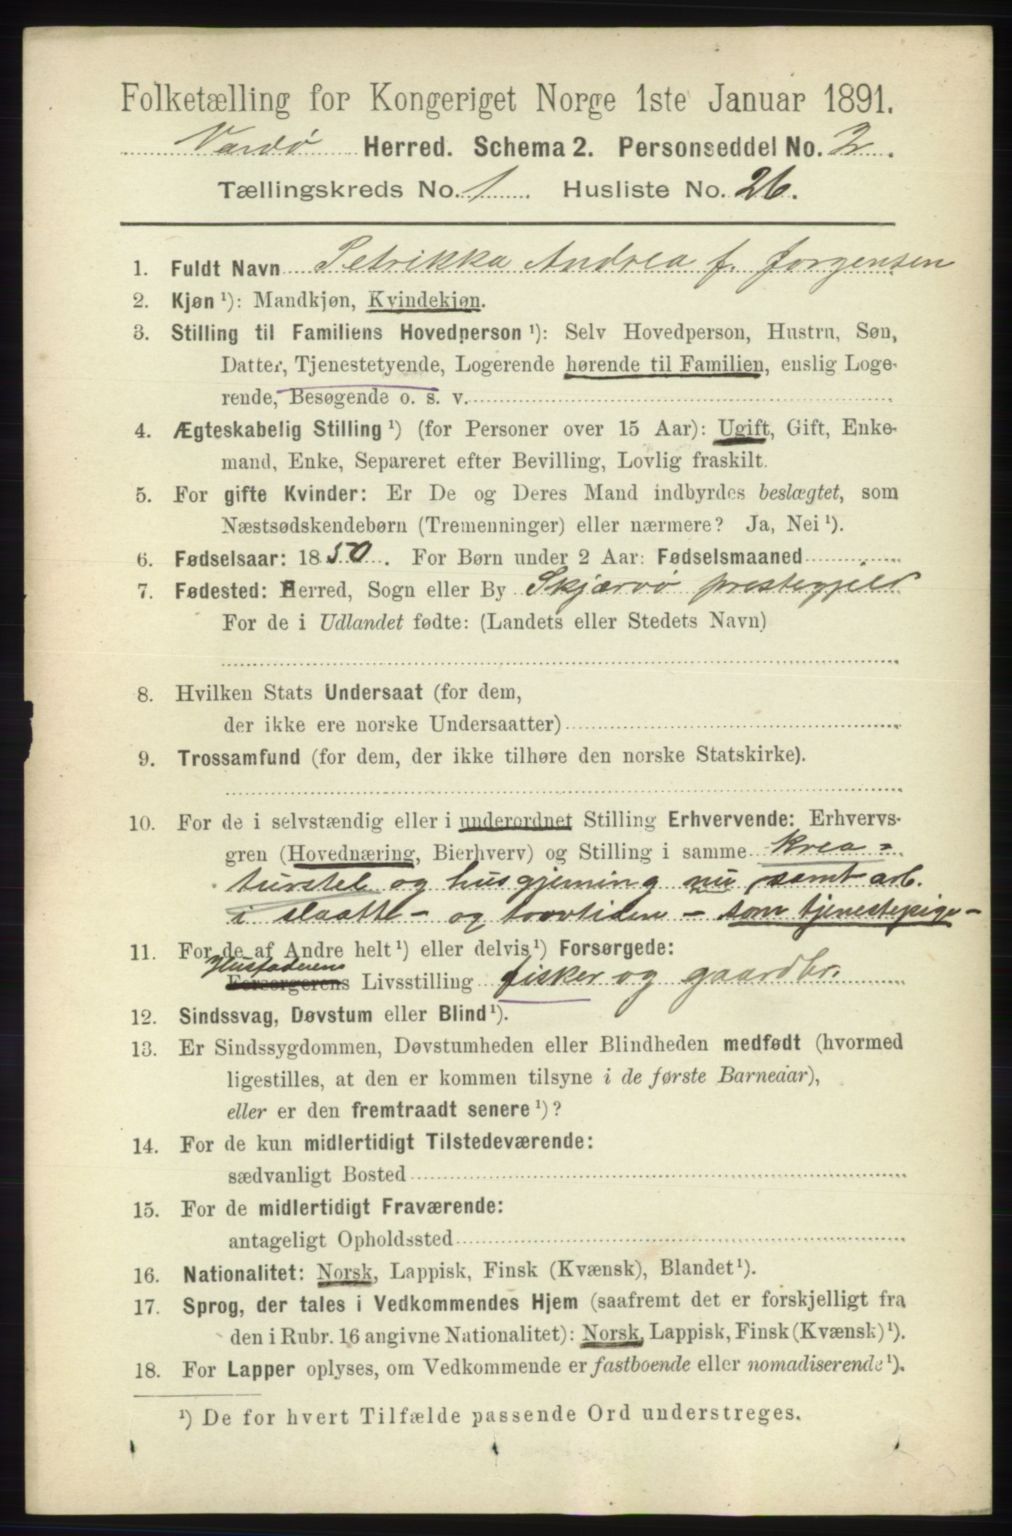 Folketælling for Kongeriget Norge 1ste Januar 1891.
Vardø Herred. Schema 2. Personseddel No. 2.
Tællingskreds No. 1. Husliste No. 26.
1. Fuldt Navn Petrikka Andrea f. Jørgensen
2. Kjøn ¹): Mandkjøn, Kvindekjøn.
3. Stilling til Familiens Hovedperson ¹): Selv Hovedperson, Hustru, Søn,
Datter, Tjenestetyende, Logerende hørende til Familien, enslig Loge-
rende, Besøgende o. s. v.
4. Ægteskabelig Stilling ¹) (for Personer over 15 Aar): Ugift, Gift, Enke-
mand, Enke, Separeret efter Bevilling, Lovlig fraskilt.
5. For gifte Kvinder: Er De og Deres Mand indbyrdes beslægtet, som
Næstsødskendebørn (Tremenninger) eller nærmere? Ja, Nei ¹).
6. Fødselsaar: 1850. For Børn under 2 Aar: Fødselsmaaned
7. Fødested: Herred, Sogn eller By Skjærvø prestegjeld
For de i Udlandet fødte: (Landets eller Stedets Navn)
8. Hvilken Stats Undersaat (for dem,
der ikke ere norske Undersaatter)
9. Trossamfund (for dem, der ikke tilhøre den norske Statskirke).
10. For de i selvstændig eller i underordnet Stilling Erhvervende: Erhvervs-
gren (Hovednæring, Bierhverv) og Stilling i samme krea-
turstel og husgjerning nu, samt arb.
i slaatte- og torvtiden - som tjenestepige-
11. For de af Andre helt ¹) eller delvis ¹) Forsørgede:
Husfaderens
Forsørgerens Livsstilling fisker og gaardbr.
12. Sindssvag, Døvstum eller Blind ¹).
13. Er Sindssygdommen, Døvstumheden eller Blindheden medfødt (hvormed
ligestilles, at den er kommen tilsyne i de første Barneaar),
eller er den fremtraadt senere ¹)?
14. For de kun midlertidigt Tilstedeværende:
sædvanligt Bosted
15. For de midlertidigt Fraværende:
antageligt Opholdssted
16. Nationalitet: Norsk, Lappisk, Finsk (Kvænsk), Blandet ¹).
17. Sprog, der tales i Vedkommendes Hjem (saafremt det er forskjelligt fra
den i Rubr. 16 angivne Nationalitet): Norsk, Lappisk, Finsk (Kvænsk) ¹).
18. For Lapper oplyses, om Vedkommende er fastboende eller nomadiserende ¹).
¹) De for hvert Tilfælde passende Ord understreges.